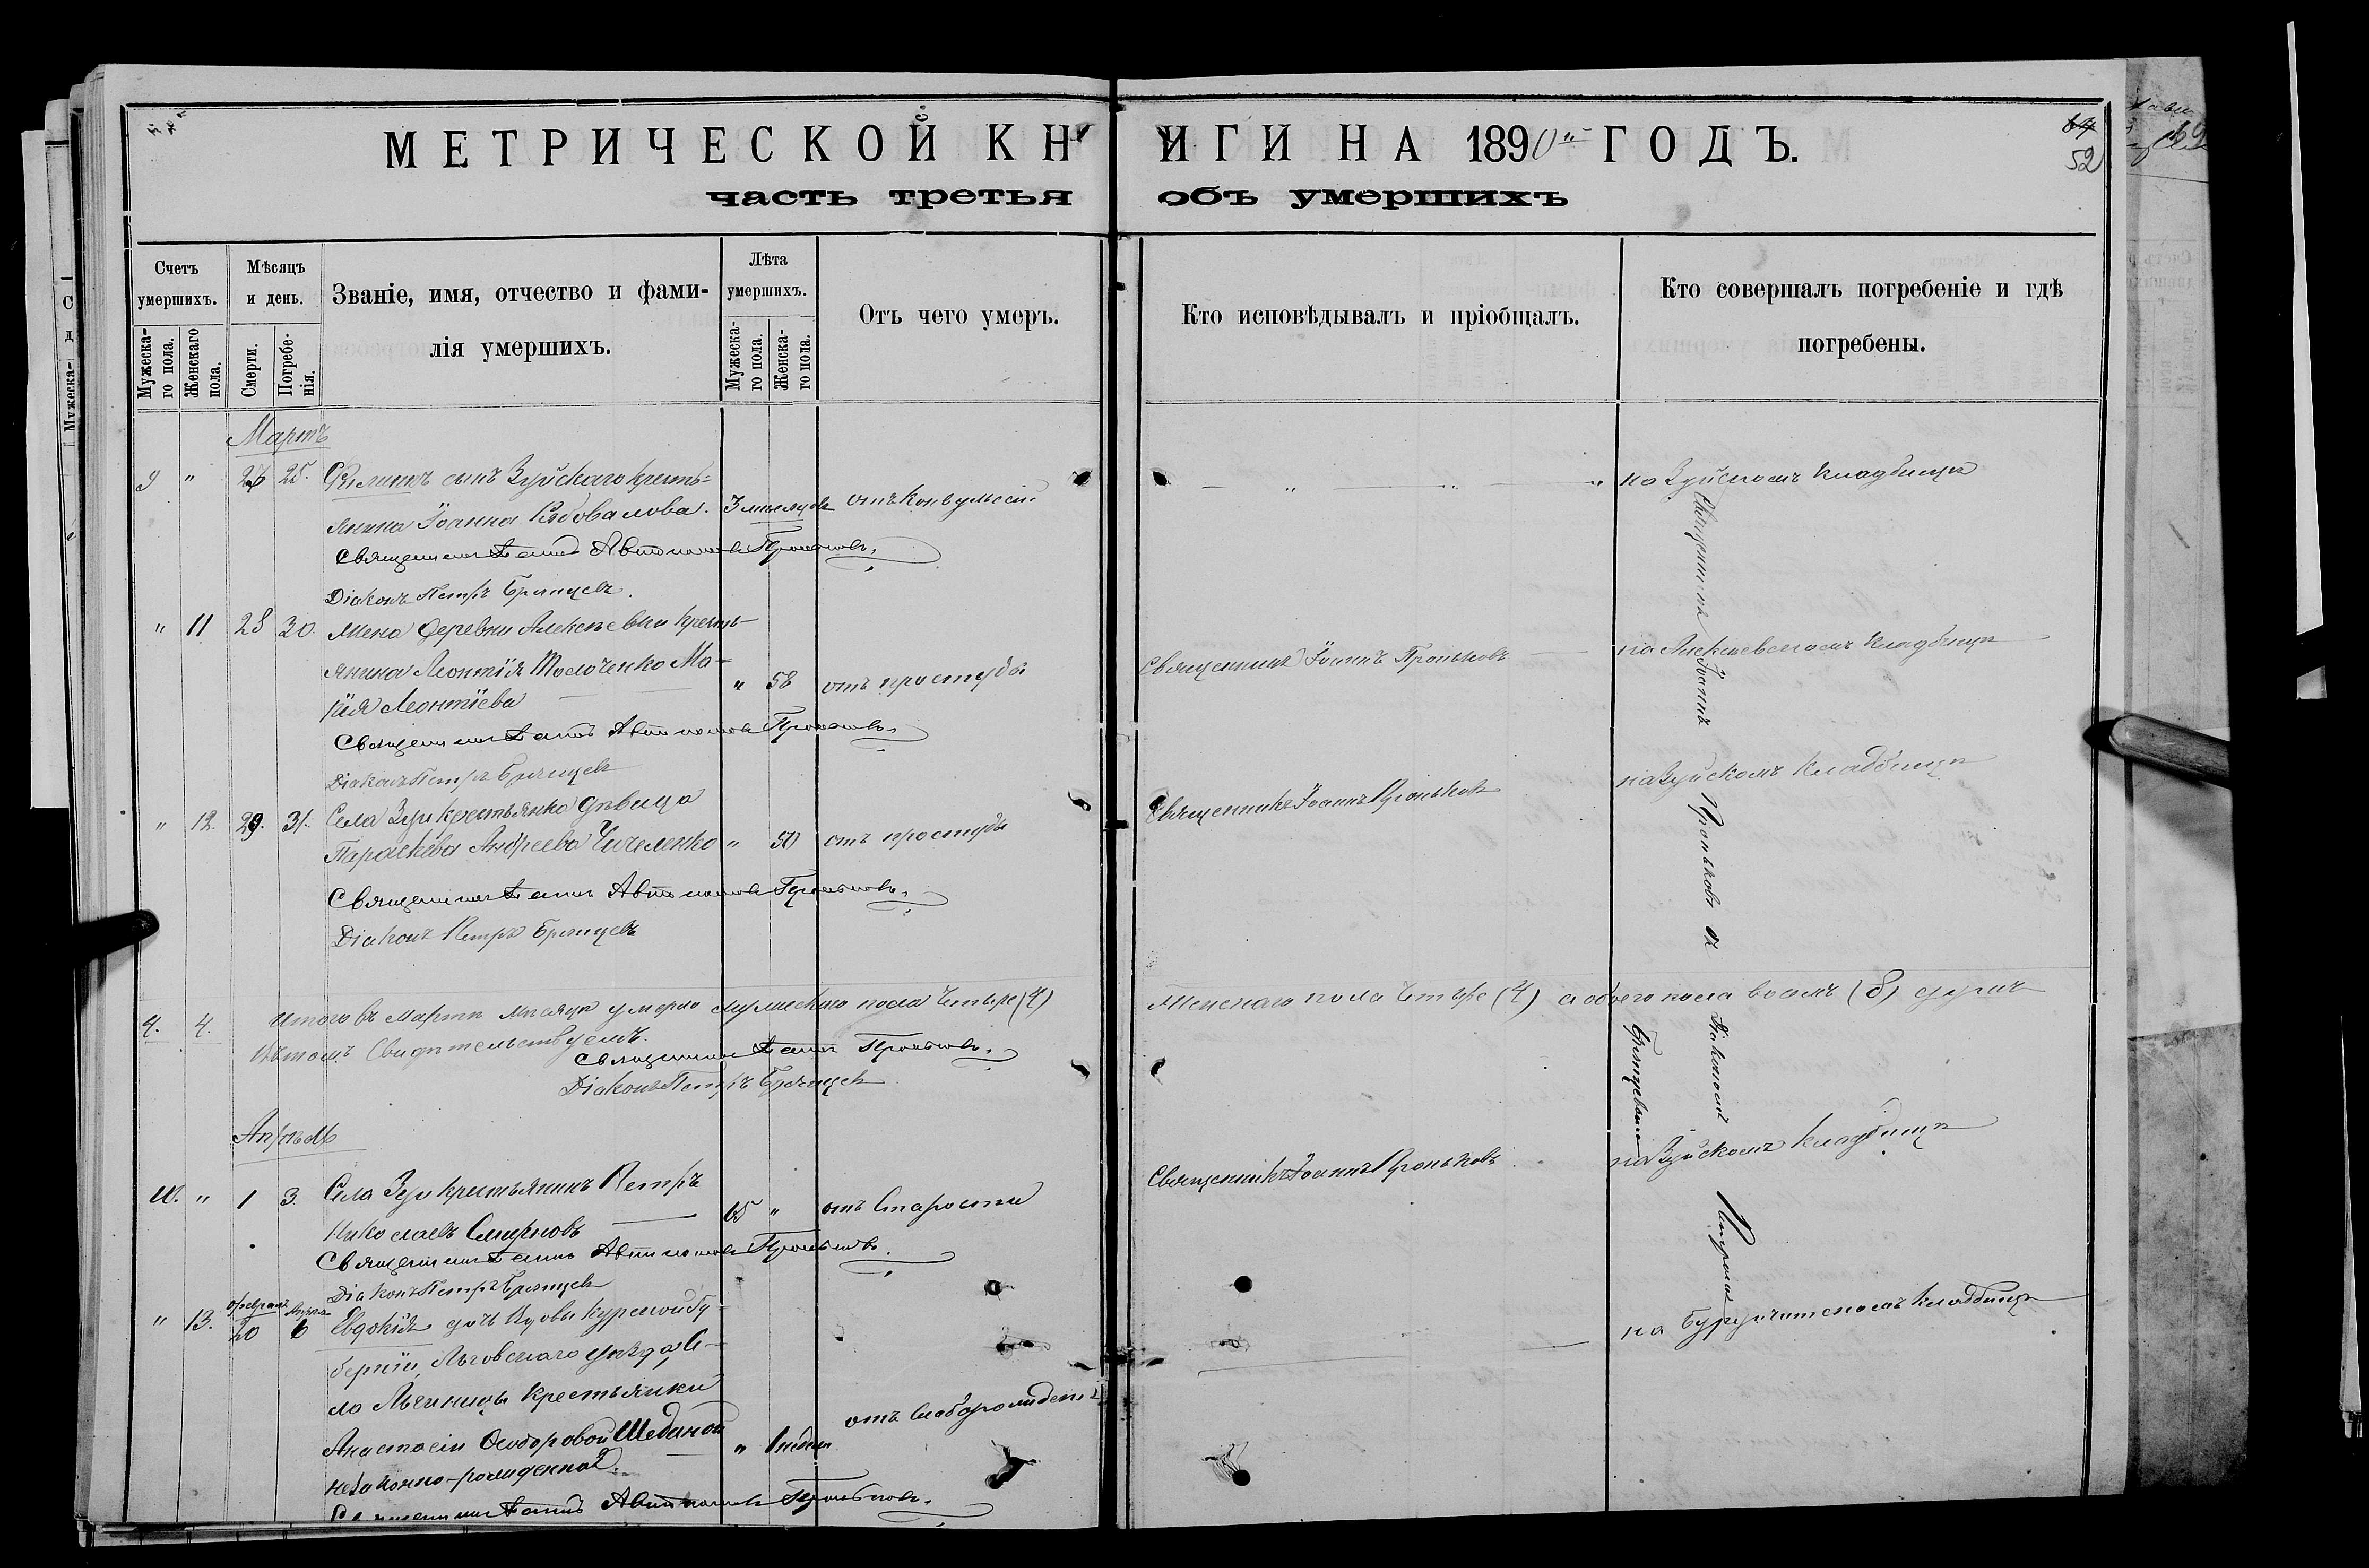 МЕТРИЧЕСКОЙ КНИГИ НА 1890й ГОДЪ.
64
52
часть третья объ умершихъ
Счетъ умершихъ.
Мужеска-го пола.
Женскаго пола.
Мѣсяцъ и день.
Смерти.
Погребе-нія.
Званіе, имя, отчество и фами-
лія умершихъ.
Лѣта умершихъ.
Мужеска-го пола.
Женска-го пола.
Отъ чего умеръ.
Кто исповѣдывалъ и пріобщалъ.
Кто совершалъ погребеніе и гдѣ
погребены.
Мартъ
9 " 25. Филиппъ сынъ Зуйскаго кресть=
янина Іоанна 3 мѣсяцовъ отъ конвульсій
на Зуйскомъ кладбищѣ
Священникъ Іоаннъ Автономовъ Проньковъ.
Діаконъ Петръ Брянцевъ.
" 11 28 30. Жена деревни Алексѣевки кресть-
янина Леонтія Толоченко Ма-
рія Леонтіева " 58 отъ простуды
Священникъ Іоаннъ Проньковъ
на Алексѣевскомъ кладбищѣ
Священникъ Іоаннъ Автономовъ Проньковъ.
Діаконъ Петръ Брянцевъ
" 12. 29. 31. Села Зуи крестьянка дѣвица
Параскева Андреева Чичеленко " 50 отъ простуды
Священникъ Іоаннъ Проньковъ
на Зуйскомъ кладбищѣ
Священникъ Іоаннъ Автономовъ Проньковъ.
Діаконъ Петръ Брянцевъ
4. 4. Итого въ Мартѣ мѣсяцѣ умерло мужескаго пола четыре (4) женскаго пола четыре (4) а обоего пола восемь (8) душъ
въ томъ свидѣтельствуемъ.
Священникъ Іоаннъ Проньковъ.
Діаконъ Петръ Брянцевъ
Апрѣль
10. " 1 3. Села Зуи крестьянинъ Петръ
Николаевъ Смирновъ 65 " отъ старости
Священникъ Іоаннъ Проньковъ
на Зуйскомъ кладбищѣ
Священникъ Іоаннъ Автономовъ Проньковъ.
Діаконъ Петръ Брянцевъ
" 13. Февраля 20 Апрѣля 6 Евдокія дочь вдовы Курской гу-
берніи, Льговскаго уѣзда, се-
ла крестьянки
Анастасіи Ѳеодоровой
незаконно-рожденная " 1 недѣли отъ слаборожденія
на кладбищѣ
Священникъ Іоаннъ Автономовъ Проньковъ.
Священникъ Іоаннъ Проньковъ съ Діакономъ Петромъ
Брянцевымъ